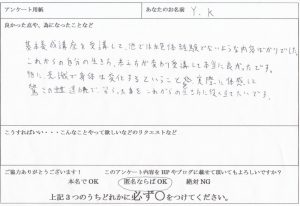 アンケート用紙
あなたのお名前 Y.K
良かった点や、為になったことなど
基本養成講座を受講して、他では体験出来ないような内容ばかりでした。
これからの自分の生き方、考え方が変わり受講して本当に良かったです。
特に意識で身体は変化するということを実際に体感して
驚きの連続で、学んだ事をこれからの生き方に役立てたいです。
こうすればいい・・・こんなことやって欲しいなどのリクエストなど
ご協力ありがとうございます！
このアンケート内容をHPやブログに載せて頂いてもよろしいですか？
本名でOK 匿名ならばOK 絶対NG
上記3つのうちどれかに必ず○をつけてください。